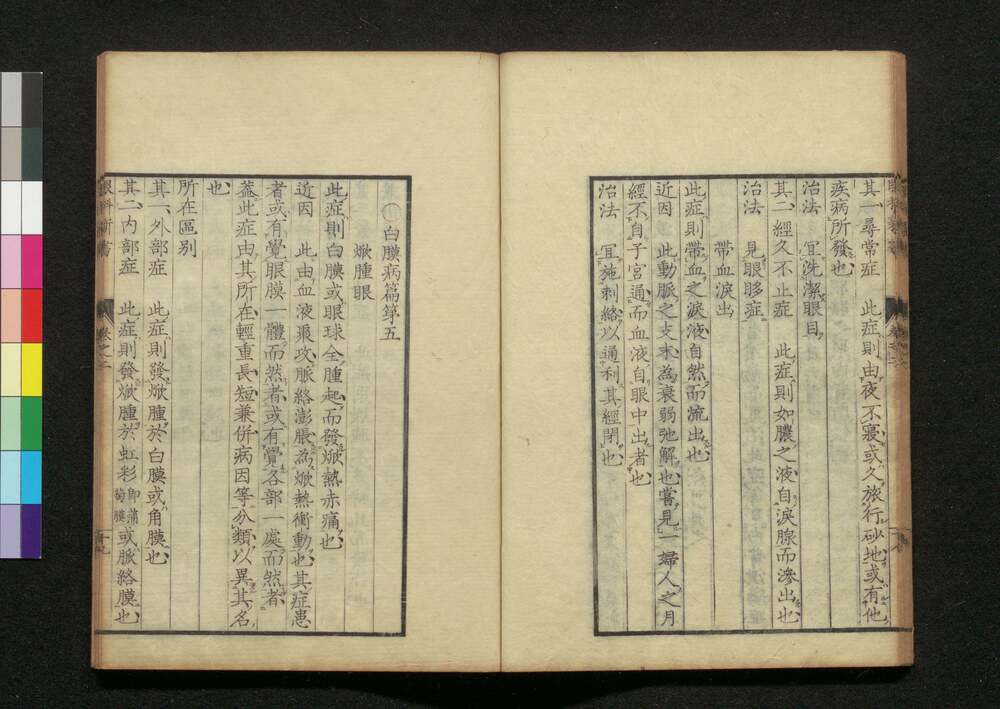 其一、尋常症　此症則由夜不寢、或久旅行砂地、或有他
疾病所發也、
治法　宜洗潔眼目、
其二、經久不止症　此症則如膿之液、自淚腺而滲出也、
治法　見眼眵症
帶血淚出
此症則帶血之淚液、自然而流出也、
近因　此動脈之支末、為衰弱弛解也、嘗見一婦人之月
經不自子宮通、而血液自眼中出者也、
治法　宜施刺絡、以通利其經閉也、
眼科新書
卷之二
十九
白膜病篇第五
焮腫眼
此症則白膜或眼球全腫起、而發焮熱赤痛也、
近因　此由血液乘攻、脈絡澎脹、為焮熱衝動也、其症患
者或有覺眼膜一體而然者、或有覺各部一處而然者、
蓋此症由其所在輕重長短兼併病因等分類、以異其名
也、
所在區別
其一、外部症　此症則發焮腫於白膜或角膜也、
其二、內部症　此症則發焮腫於虹彩即蒲萄膜或脈絡膜也、